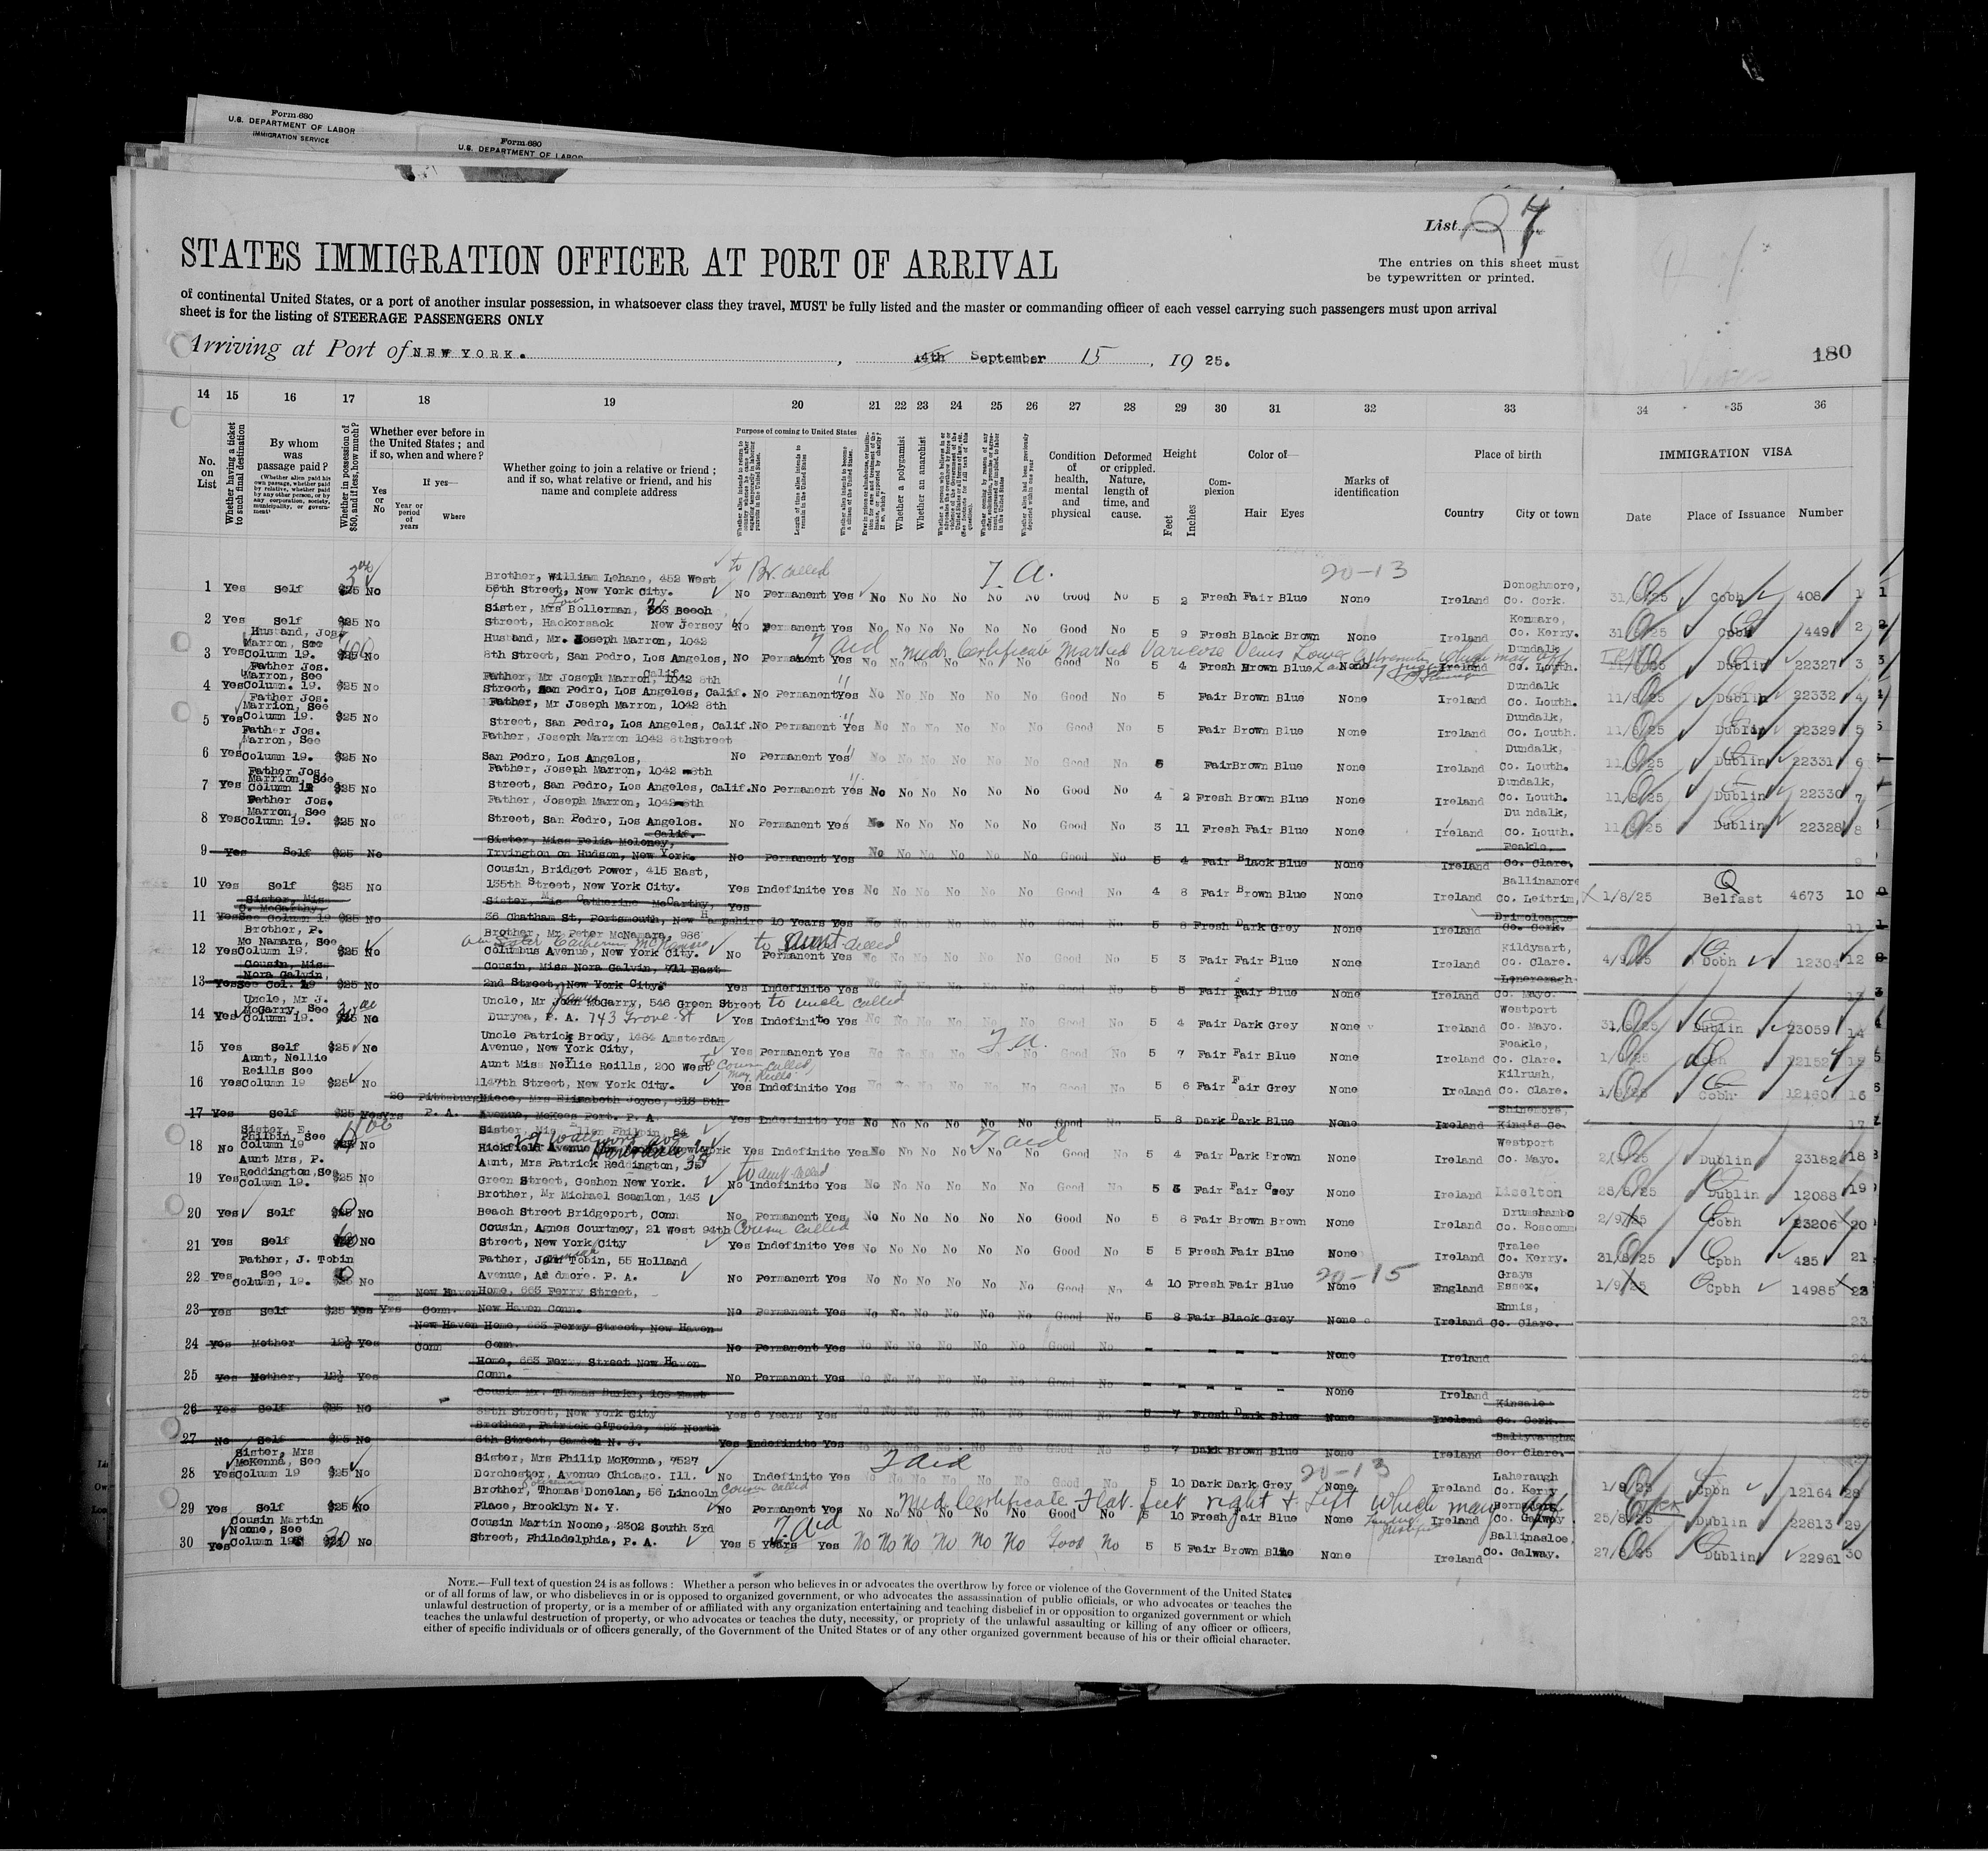 Form 680
U.S. DEPARTMENT OF LABOR
IMMIGRATION SERVICE
Form 680
U.S. DEPARTMENT OF LABOR
List 27
STATES IMMIGRATION OFFICER AT PORT OF ARRIVAL
The entries on this sheet must
be typewritten or printed.
of continental United States, or a port of another insular possession, in whatsoever class they travel, MUST be fully listed and the master or commanding officer of each vessel carrying such passengers must upon arrival
sheet is for the listing of STEERAGE PASSENGERS ONLY
Arriving at Port of NEW YORK. , 14th September 15, 19 25.
180
14 15 16 17 18 19 20 21 22 23 24 25 26 27 28 29 30 31 32 33 34 35 36
No. on List
Whether having a ticket to such final destination
By whom was passage paid?
(Whether alien paid his own passage, whether paid by relative, whether paid by any other person, or by any corporation, society, municipality, or government)
Whether in possession of $50, and if less, how much?
Whether ever before in the United States; and if so, when and where?
Yes or No
If yes—
Year or period of years
Where
Whether going to join a relative or friend; and if so, what relative or friend, and his name and complete address
Purpose of coming to United States
Length of time alien intends to remain in the United States
Whether alien intends to become a citizen of the United States.
Whether a polygamist
Whether an anarchist
Condition of health, mental and physical
Deformed or crippled. Nature, length of time, and cause.
Height
Feet Inches
Complexion
Color of—
Hair Eyes
Marks of identification
Place of birth
Country City or town
IMMIGRATION VISA
Date Place of Issuance Number
to Br. called T. A. 20-13
Brother, William Lehane, 452 West Donoghmore,
1 Yes Self $25 No 56th Street, New York City. No Permanent Yes No No No No No No Good No 5 2 Fresh Fair Blue None Ireland Co. Cork. 31/8/25 Cobh 408 1
Sister, Mrs Bollerman, 303 Beech Kenmare,
2 Yes Self $25 No Street, Hackersack New Jersey No Permanent Yes No No No No No No Good No 5 9 Fresh Black Brown None Ireland Co. Kerry. 31/8/25 Cpbh 449 2
Husband, Jos. Marron, See Husband, Mr. Joseph Marron, 1042 Dundalk
T Aid Med. Certificate Marked Varicose Veins Lower Extremity which may aff
3 Yes Column 19. $25 No 8th Street, San Pedro, Los Angeles, No Permanent Yes No No No No No No Good No 5 4 Fresh Brown Blue None Ireland Co. Louth. Dublin 22327 3
Calif.
Father Jos. Marron, See Father, Mr Joseph Marron, 1042 8th Dundalk
4 Yes Column. 19. $25 No Street, San Pedro, Los Angeles, Calif. No Permanent Yes No No No No No No Good No 5 Fair Brown Blue None Ireland Co. Louth. 11/8/25 Dublin 22332 4
Father Jos. Marrion, See Father, Mr Joseph Marron, 1042 8th Dundalk,
5 Yes Column 19. $25 No Street, San Pedro, Los Angeles, Calif. No Permanent Yes No No No No No No Good No 5 Fair Brown Blue None Ireland Co. Louth. 11/8/25 Dublin 22329 5
Father Jos. Marron, See Father, Joseph Marron 1042 8thStreet Dundalk,
6 Yes Column 19. $25 No San Pedro, Los Angeles, No Permanent Yes No No No No No No Good No 5 Fair Brown Blue None Ireland Co. Louth. 11/8/25 Dublin 22331 6
Father Jos. Marrion, See Father, Joseph Marron, 1042 8th Dundalk,
7 Yes Column 19 $25 No Street, San Pedro, Los Angeles, Calif. No Permanent Yes No No No No No No Good No 4 2 Fresh Brown Blue None Ireland Co. Louth. 11/8/25 Dublin 22330 7
Father Jos. Marron, See Father, Joseph Marron, 1042 8th Du ndalk,
8 Yes Column 19. $25 No Street, San Pedro, Los Angeles. No Permanent Yes No No No No No No Good No 3 11 Fresh Fair Blue None Ireland Co. Louth. 11/8/25 Dublin 22328 8
Calif.
Sister, Miss Felia Moloney, Feakle,
9 Yes Self $25 No Irvington on Hudson, New York. No Permanent Yes No No No No No No Good No 5 4 Fair Black Blue None Ireland Co. Clare. 9
Cousin, Bridget Power, 415 East, Ballinamore
10 Yes Self $25 No 135th Street, New York City. Yes Indefinite Yes No No No No No No Good No 4 8 Fair Brown Blue None Ireland Co. Leitrim, 1/8/25 Belfast 4673 10
Sister, Mis C. McCarthy, Sister, Mis Catherine McCarthy, Yes Drimoleague
11 Yes See Column 19 $25 No 36 Chatham St, Portsmouth, New Hampshire 10 Years Yes No No No No No No Good No 5 8 Fresh Dark Grey None Ireland Co. Cork. 11
Brother, P. Mc Namara, See Brother, Mr Peter McNamara, 986 Sister Catherine McNamara to aunt called Kildysart,
12 Yes Column 19. $25 No Columbus Avenue, New York City. No Permanent Yes No No No No No No Good No 5 3 Fair Fair Blue None Ireland Co. Clare. 4/9/25 Cobh 12304 12
Cousin, Miss Nora Galvin, Cousin, Miss Nora Galvin, 711 East
13 Yes See Col. 19 $25 No 2nd Street, New York City. Yes Indefinite Yes No No No No No No Good No 5 5 Fair Fair Blue None Ireland Co. Mayo. 13
Uncle, Mr J. McGarry, See Uncle, Mr John McGarry, 546 Green Street to uncle called Westport
14 Yes Column 19. $25 No Duryea, P. A. 743 Grove St Yes Indefinite Yes No No No No No No Good No 5 4 Fair Dark Grey None Ireland Co. Mayo. 31/8/25 Dublin 23059 14
Uncle Patrick Brody, 1484 Amsterdam T. A. Feakle,
15 Yes Self $25 No Avenue, New York City, Yes Permanent Yes No No No No No No Good No 5 7 Fair Fair Blue None Ireland Co. Clare. Cobh 12152 15
Aunt, Nellie Reills See Aunt Miss Nellie Reills, 200 West to Cousin called, May Reills Kilrush,
16 Yes Column 19 $25 No 147th Street, New York City. Yes Indefinite Yes No No No No No No Good No 5 6 Fair Fair Grey None Ireland Co. Clare. Cobh 12160 16
20 Pittsburg Niece, Mrs Elizabeth Joyce, 813 5th Shinemore,
17 Yes Self $25 Yes Yrs P. A. Avenue, McKees Port. P. A Yes Indefinite Yes No No No No No No Good No 5 8 Dark Dark Blue None Ireland King's Co 17
Sister, E. Philbin, See Sister, Mis Ellen Philbin, 84 T aid Westport
18 No Column 19 $25 No Hickfield Avenue New York Yes Indefinite Yes No No No No No No Good No 5 4 Fair Dark Brown None Ireland Co. Mayo. Dublin 23182 18
Aunt Mrs, P. Reddington, See Aunt, Mrs Patrick Reddington, 35 to aunt called
19 Yes Column 19. $25 No Green Street, Goshen New York. No Indefinite Yes No No No No No No Good No 5 6 Fair Fair Grey None Ireland Liselton 28/8/25 Dublin 12088 19
Brother, Mr Michael Scanlon, 145 Drumshambo
20 Yes Self $25 No Beach Street Bridgeport, Conn No Permanent Yes No No No No No No Good No 5 8 Fair Brown Brown None Ireland Co. Roscomm 2/9/25 Cobh 23206 20
Cousin, Agnes Courtney, 21 West 94th Cousin called Tralee
21 Yes Self No Street, New York City Yes Indefinite Yes No No No No No No Good No 5 5 Fresh Fair Blue None Ireland Co. Kerry. 31/8/25 Cpbh 425 21
Father, J. Tobin See Father, Tobin, 55 Holland 20-15 Grays
22 Yes Column, 19. $25 No Avenue, Ardmore. P. A. No Permanent Yes No No No No No No Good No 4 10 Fresh Fair Blue None England Essex. 1/9/25 Cpbh 14985 22
New Haven Home, 663 Ferry Street, Ennis,
23 Yes Self $25 Yes Yes Conn. New Haven Conn. No Permanent Yes No No No No No No Good No 5 8 Fair Black Grey None Ireland Co. Clare. 23
New Haven Home, 663 Ferry Street, New Haven
24 Yes Mother 12½ Yes Conn Conn. No Permanent Yes No No No No No No Good No - - - - None Ireland 24
Home, 663 Ferry Street New Haven
25 Yes Mother, 12½ Yes Conn. No Permanent Yes No No No No No No Good No - - - - None Ireland 25
Cousin Mr. Thomas Burke, 103 East Kinsale
26 Yes Self $25 No Street, New York City Yes 6 Years Yes No No No No No No Good No 5 7 Fresh Dark Blue None Ireland Co. Cork. 26
Brother, Patrick O'Toole, 423 North Ballyvaughn
27 No Self $25 No 6th Street, Camden N. J. Yes Indefinite Yes No No No No No No Good No 5 7 Dark Brown Blue None Ireland Co. Clare.
Sister, Mrs McKenna, See Sister, Mrs Philip McKenna, 7527 T aid 20-13 Laheraugh
28 Yes Column 19 $25 No Dorchester, Avenue Chicago. Ill. No Indefinite Yes No No No No No No Good No 5 10 Dark Dark Grey None Ireland Co. Kerry 1/9/25 Cpbh 12164 28
Brother, Thomas Donelan, 56 Lincoln Cousin called Med Certificate Flat feet right & left which may aff
29 Yes Self $25 No Place, Brooklyn N. Y. No Permanent Yes No No No No No No Good No 5 10 Fresh Fair Blue None Ireland Co. Galway 25/8/25 Dublin 22813 29
Cousin Martin Noone, See Cousin Martin Noone, 2302 South 3rd T. Aid Ballinasloe,
30 Yes Column 19 30 No Street, Philadelphia, P. A. Yes 5 Years Yes No No No No No No Good No 5 5 Fair Brown Blue None Ireland Co. Galway. 27/8/25 Dublin 22961 30
NOTE.—Full text of question 24 is as follows: Whether a person who believes in or advocates the overthrow by force or violence of the Government of the United States
or of all forms of law, or who disbelieves in or is opposed to organized government, or who advocates the assassination of public officials, or who advocates or teaches the
unlawful destruction of property, or is a member of or affiliated with any organization entertaining and teaching disbelief in or opposition to organized government or which
teaches the unlawful destruction of property, or who advocates or teaches the duty, necessity, or propriety of the unlawful assaulting or killing of any officer or officers,
either of specific individuals or of officers generally, of the Government of the United States or of any other organized government because of his or their official character.